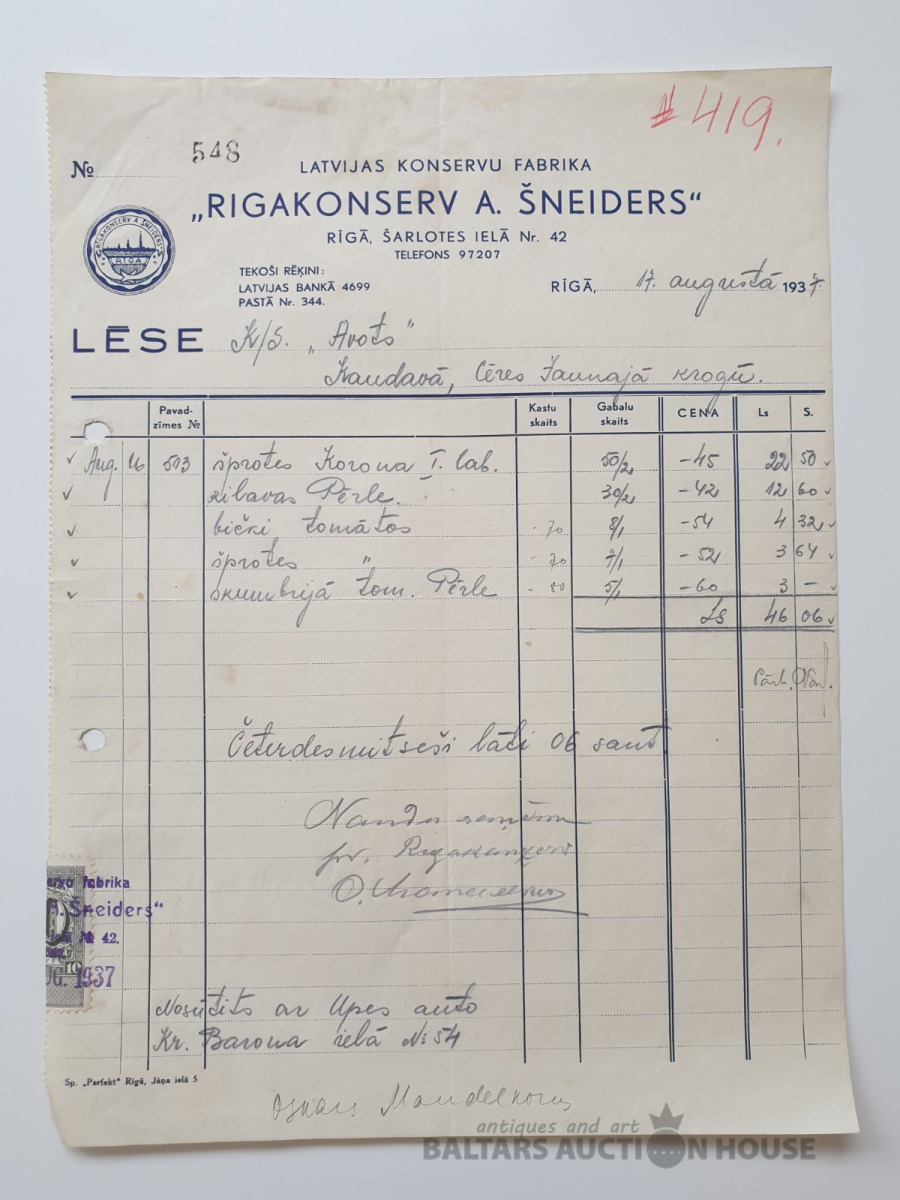 # 419.
№ 548
LATVIJAS KONSERVU FABRIKA
„RIGAKONSERV A. ŠNEIDERS“
RĪGĀ, ŠARLOTES IELĀ Nr. 42
TELEFONS 97207
RIGAKONSERV A ŠNEIDERS
RĪGA
TEKOŠI RĒĶINI:
LATVIJAS BANKĀ 4699
PASTĀ Nr. 344.
RĪGĀ, 17. augustā 1937
LĒSE K/S. „Avots“
Kandavā, Cēres Jaunajā krogū.
Pavadzīmes № Kastu skaits Gabalu skaits CENA Ls S.
Aug. 16 513 šprotes Korona I. lab. 50/2 -45 22 50
Pērle. 30/2 -42 12 60
bički tomātos -70 8/1 -54 4 32
šprotes „ -70 7/1 -52 3 64
skumbrijā tom. Pērle 5/1 -60 3 —
Ls 46 06
Četrdesmitseši lati 06 sant
Naudu saņēmu
Rigakonserv
fabrika
A. Šneiders“
№ 42.
UG. 1937
10
Nosūtīts ar Upes auto
Kr. Barona ielā № 54
Sp. „Perfekt“ Rīgā, Jāņa ielā 5
Oskars Mandelkorns
antiques and art
BALTARS AUCTION HOUSE